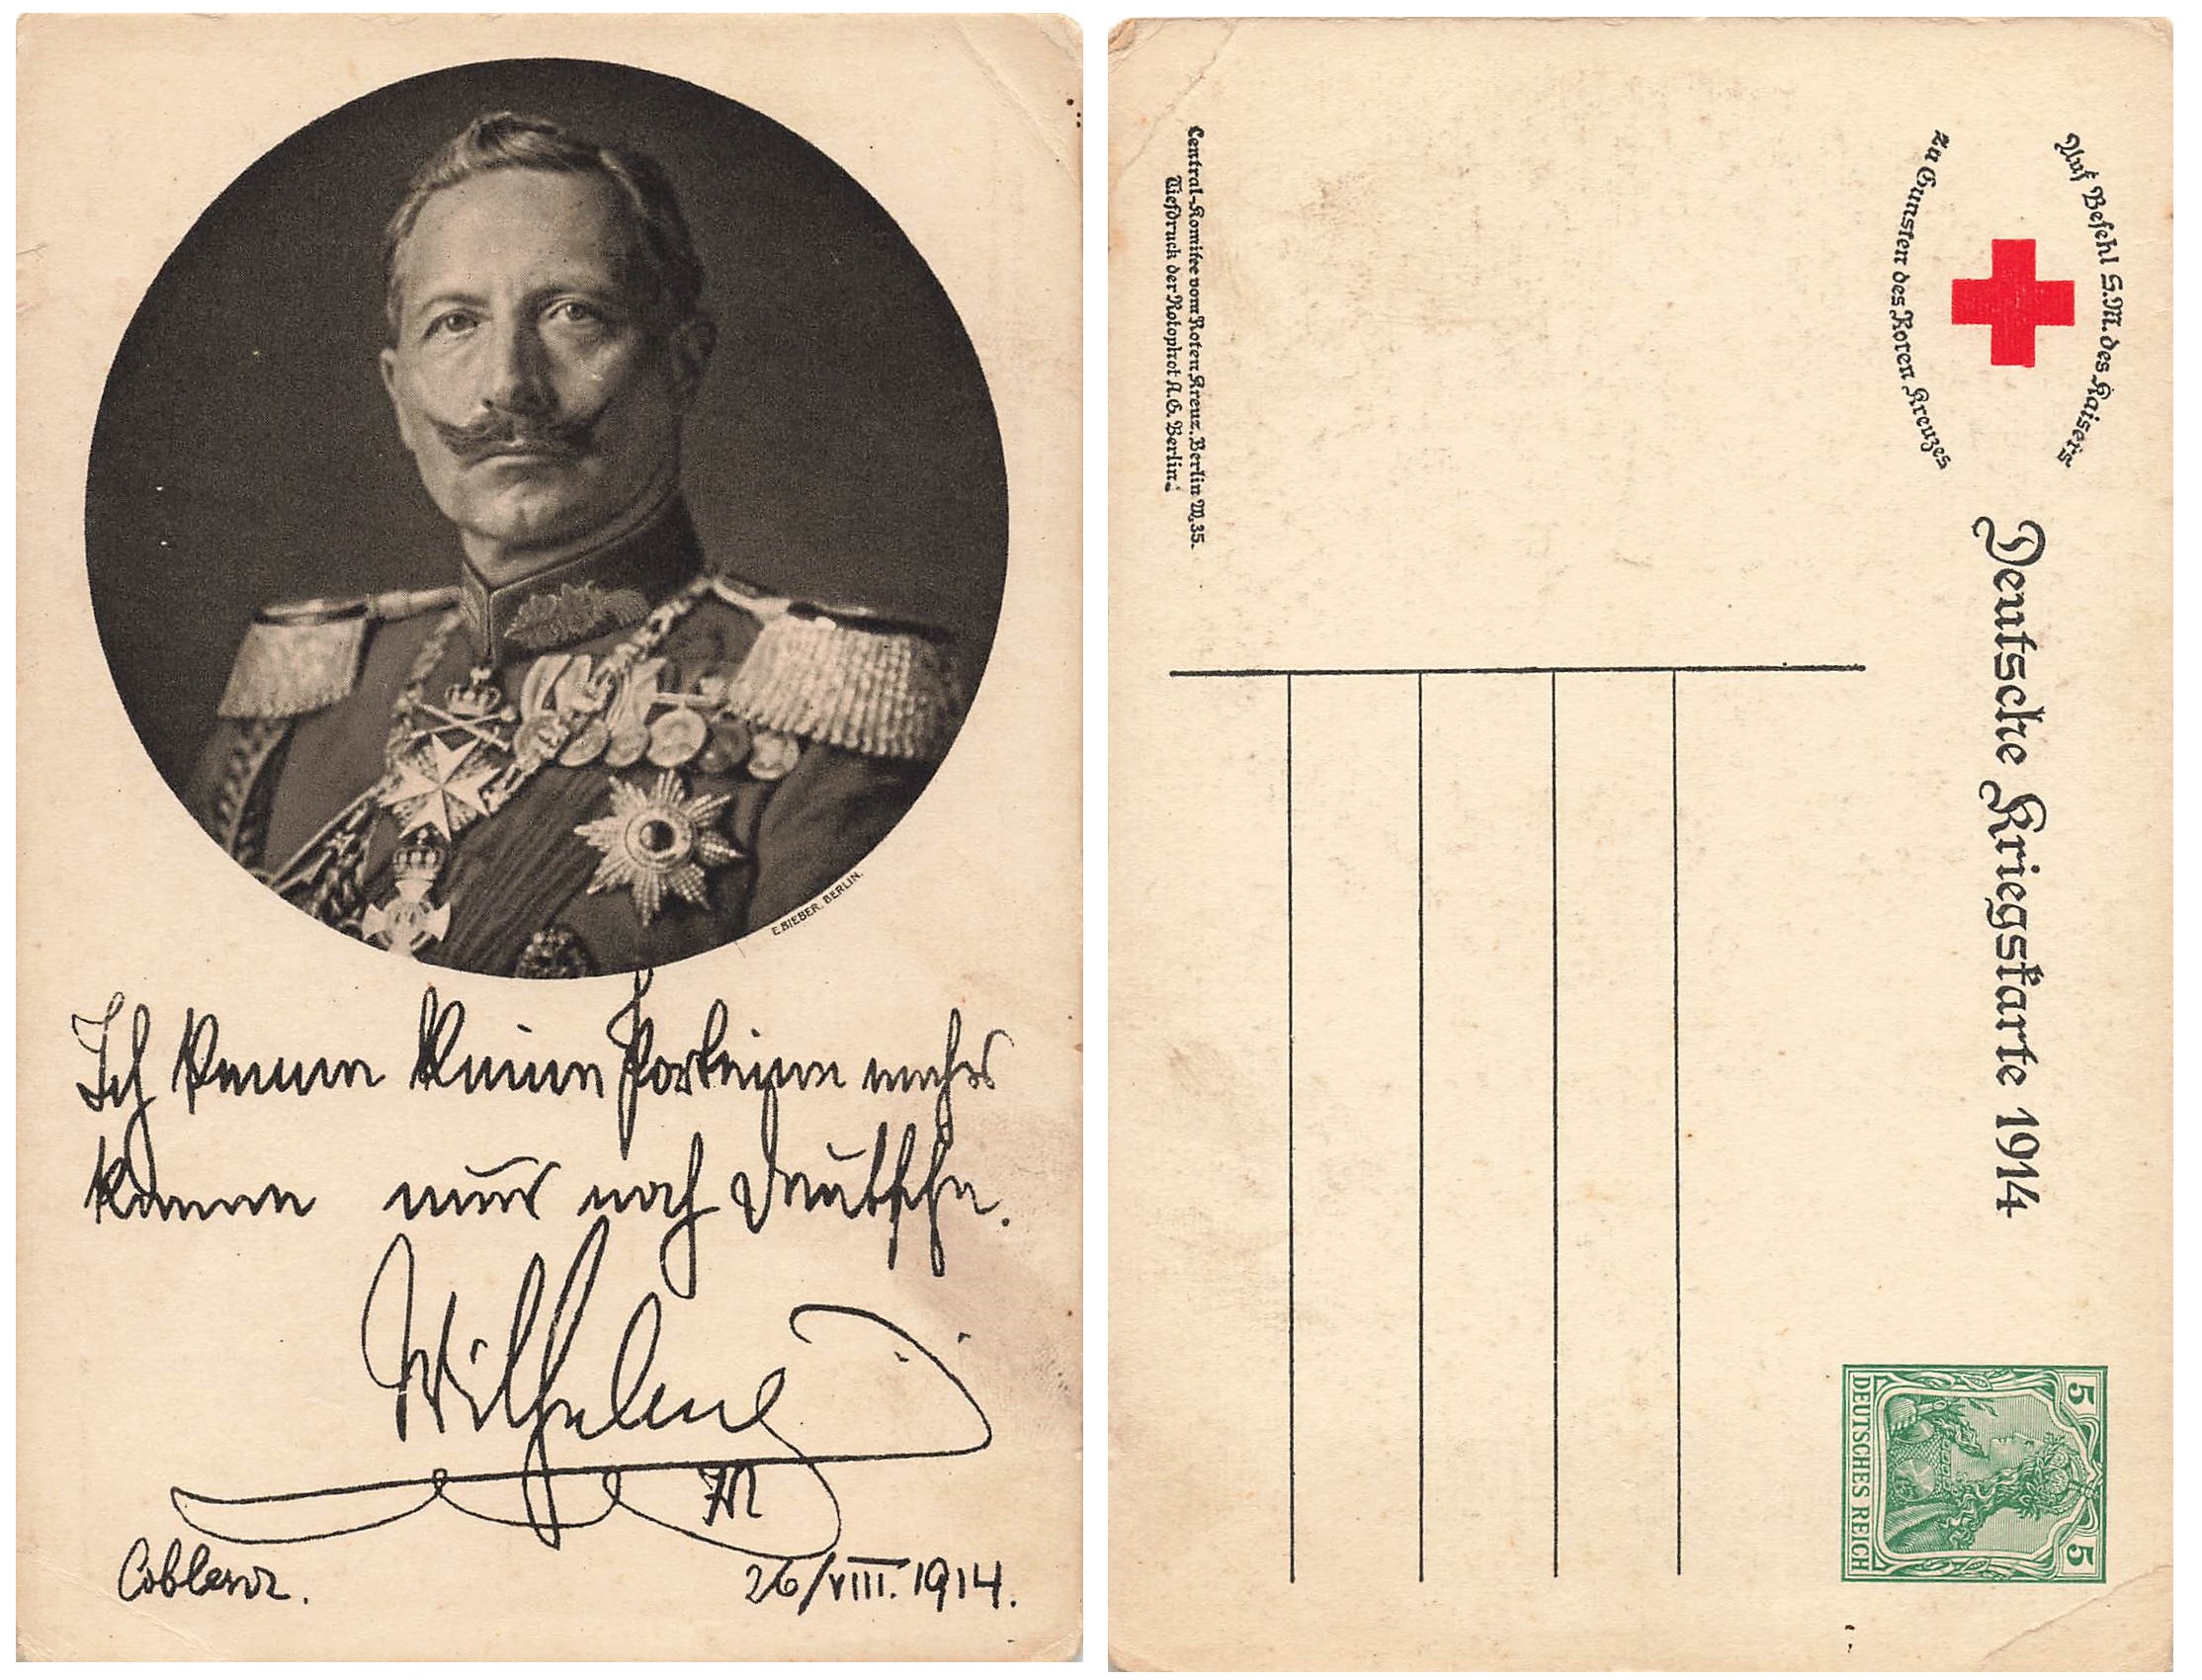 E. BIEBER, BERLIN.
Ich kenne keine Parteien mehr
kenne nur noch Deutsche.
Wilhelm
IR
Coblenz.
26/VIII. 1914.
Auf Befehl S.M. des Kaisers
zu Gunsten des Roten Kreuzes
Deutsche Kriegskarte 1914
5 5
DEUTSCHES REICH
Central-Komitee vom Roten Kreuz, Berlin W. 35.
Tiefdruck der Rotophot A.G. Berlin.